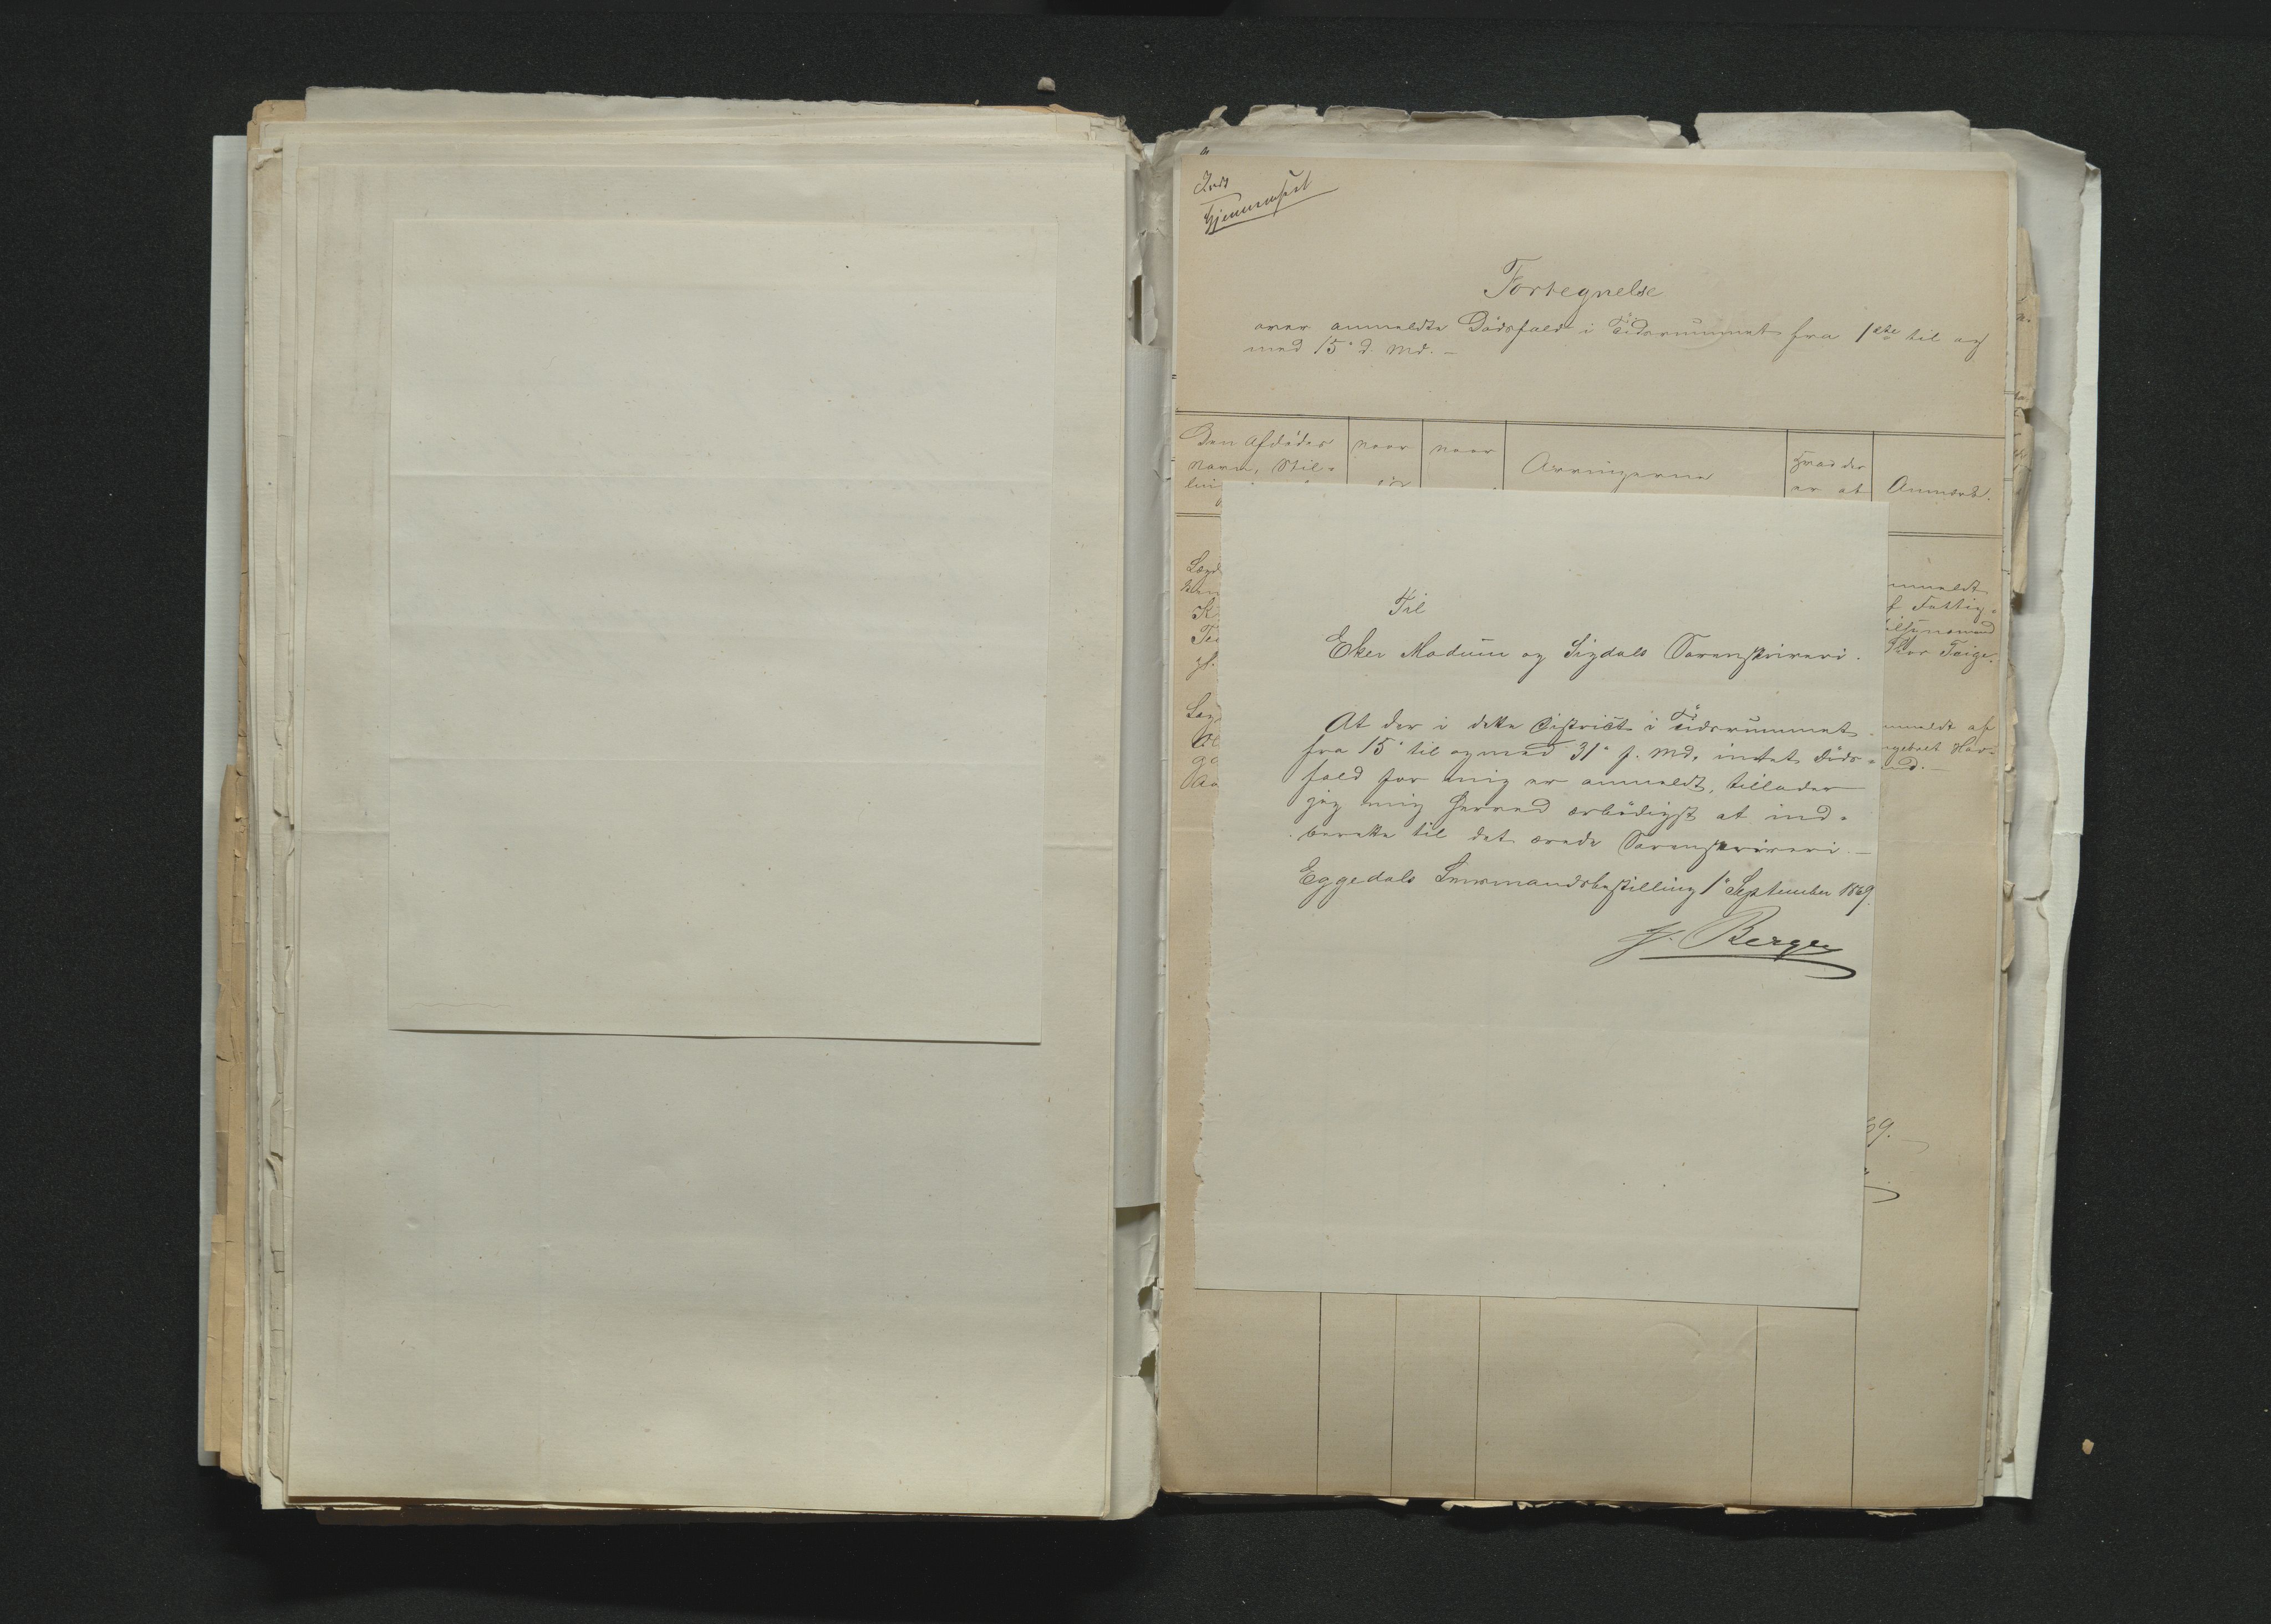 Gjennemseet
Fortegnelse
over anmeldte Dødsfald i Tidsrummet fra 1ste til og
med 15' d. Md. –
Den Afdødes
Navn, Stil-
naar
naar
Arvingerne
Hvad der
er at
Anmærk.
Til
Eker Modum og Sigdals Sorenskriveri.
At der i dette District i Tidsrummet
fra 15' til og med 31' f. Md. intet Døds-
fald for mig er anmeldt, tillader
jeg mig herved ærbødigst at ind-
berette til det ærede Sorenskriveri. –
Eggedals Lensmandsbestilling 1' September 1869.
Berger
nmeldt
f Fattig-
nmeldt af
nd. –
69.